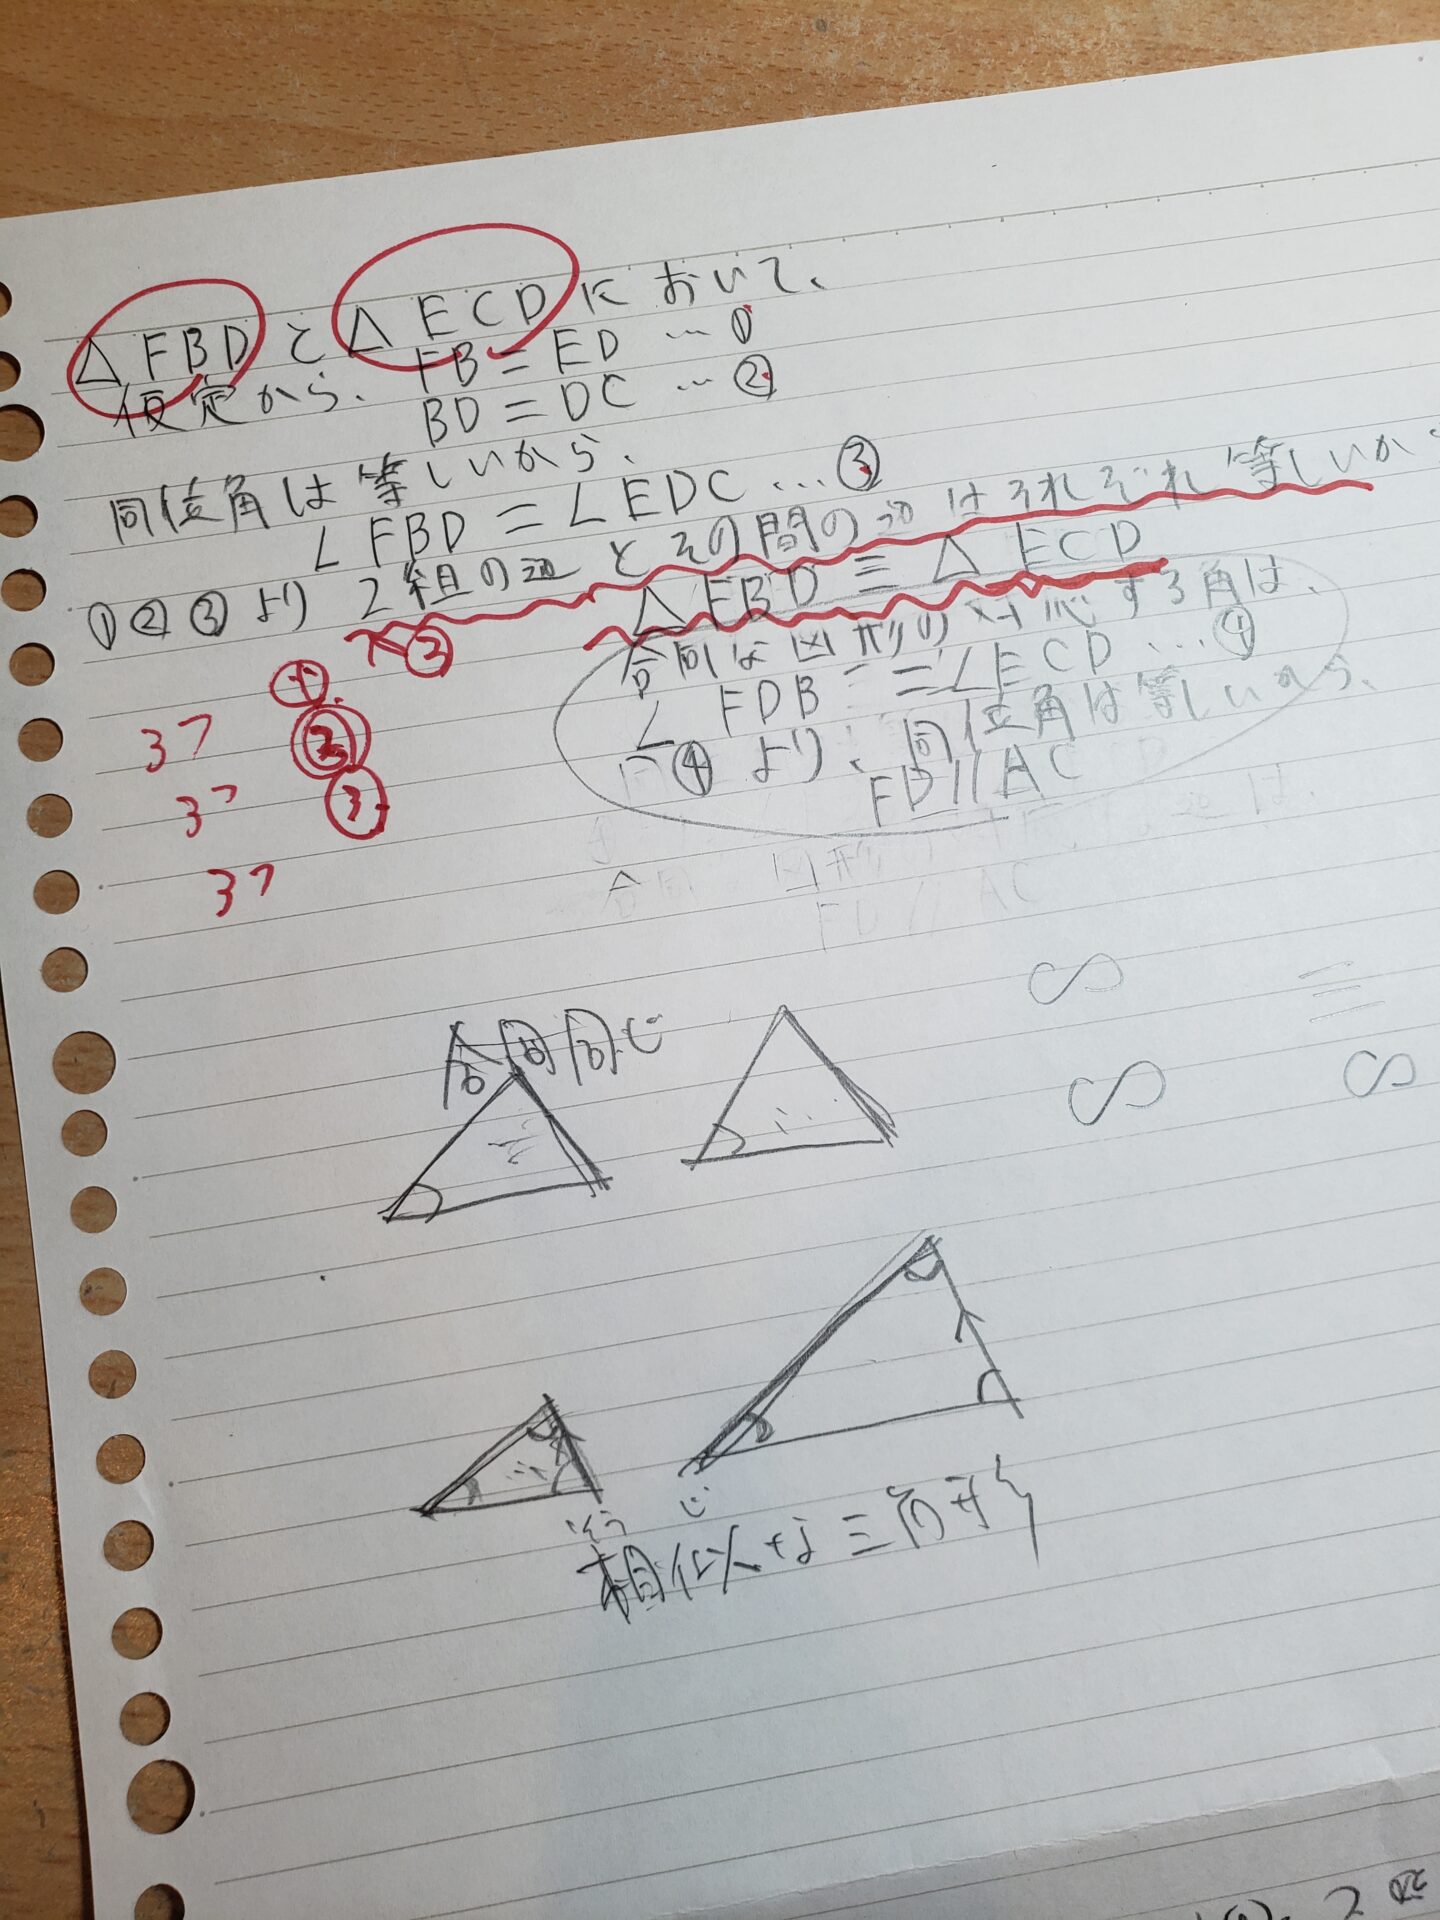 △FBDと△ECDにおいて、
仮定から、FB=ED…①
BD=DC…②
同位角は等しいから、
∠FBD=∠EDC…③
①②③より2組の辺とその間の辺はそれぞれ等しいか
△FBD≡△ECD
合同な図形の対応する角は、
∠FDB=∠ECD…④
④より、同位角は等しいから、
FD//AC
③
①
3つ ②
3つ ③
3つ
合同
図形の
は
FD//AC
∽ ≡
合同 同じ
∽ ∽
相似な三角形